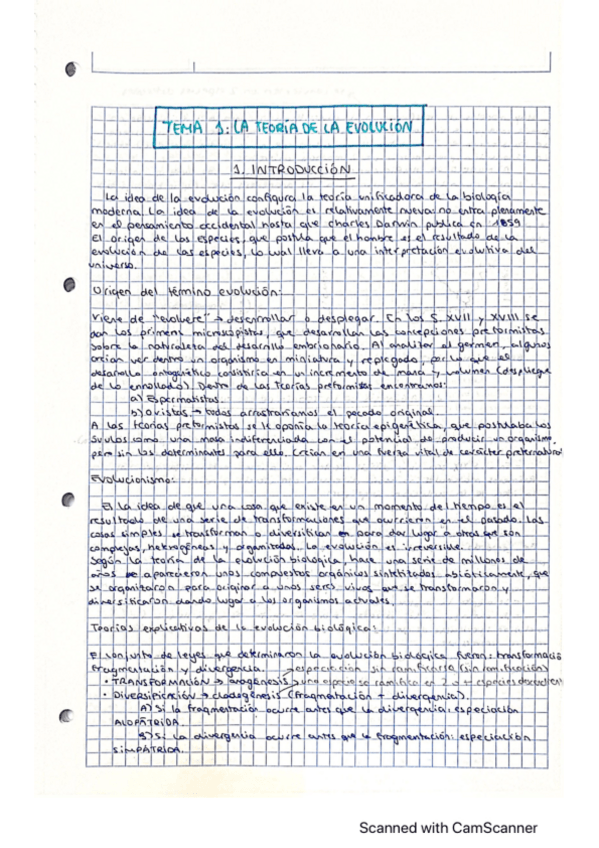 TEMA 1: LA TEORÍA DE LA EVOLUCIÓN
1. INTRODUCCIÓN
La idea de la evolución configura la teoría unificadora de la biología
moderna. La idea de la evolución es relativamente nueva: no entra plenamente
en el pensamiento occidental hasta que Charles Darwin publica en 1859
El origen de las especies, que postula que el hombre es el resultado de la
evolución de las especies, lo cual lleva a una interpretación evolutiva del
universo.
Origen del término evolución:
Viene de "evolvere" → desarrollar o desplegar. En los S. XVII y XVIII se
dan los primeros microscopistas, que desarrollan las concepciones preformistas
sobre la naturaleza del desarrollo embrionario. Al analizar el germen, algunos
creían ver dentro un organismo en miniatura y replegado, por lo que el
desarrollo ontogenético consistiría en un incremento de masa y volumen (despliegue
de lo enrollado). Dentro de las teorías preformistas encontramos:
a) Espermatistas.
b) Ovistas → todos arrastraríamos el pecado original.
A las teorías preformistas se le oponía la teoría epigenética, que postulaba los
óvulos como una masa indiferenciada con el potencial de producir un organismo,
pero sin los determinantes para ello. Creían en una fuerza vital de carácter preternatural
Evolucionismo:
Es la idea de que una cosa que existe en un momento del tiempo es el
resultado de una serie de transformaciones que ocurrieron en el pasado. Las
cosas simples se transforman o diversifican para dar lugar a otras que son
complejas, heterogéneas y organizadas. La evolución es irreversible.
Según la teoría de la evolución biológica, hace una serie de millones de
años aparecieron unos compuestos orgánicos sintetizados abióticamente, que
se organizaron para originar a unos seres vivos que se transformaron y
diversificaron dando lugar a los organismos actuales.
Teorías explicativas de la evolución biológica:
El conjunto de leyes que determinaron la evolución biológica fueron: transformación
fragmentación y divergencia. → especiación sin ramificarse (sin ramificación)
• TRANSFORMACIÓN → anagénesis → una especie se ramifica en 2 o + especies descendientes
• DIVERSIFICACIÓN → cladogénesis (fragmentación + divergencia).
A) Si la fragmentación ocurre antes que la divergencia: especiación
ALOPÁTRIDA.
B) Si la divergencia ocurre antes que la fragmentación: especiación
SIMPÁTRIDA.
Scanned with CamScanner